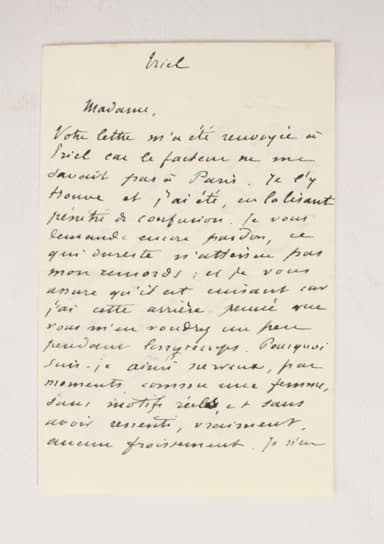 Triel
Madame,
Votre lettre m'a été renvoyée à
Triel car le facteur ne me
savait pas à Paris. Je l'y
trouve et j'ai été, en la lisant
pénétré de confusion. Je vous
demande encore pardon, ce
qui du reste n'atténue pas
mon remords ; et je vous
assure qu'il est cuisant car
j'ai cette arrière pensée que
vous m'en voudrez un peu
pendant longtemps. Pourquoi
suis-je ainsi nerveux, par
moments comme une femme,
sans motifs réels, et sans
avoir ressenti, vraiment,
aucun froissement. Je n'en